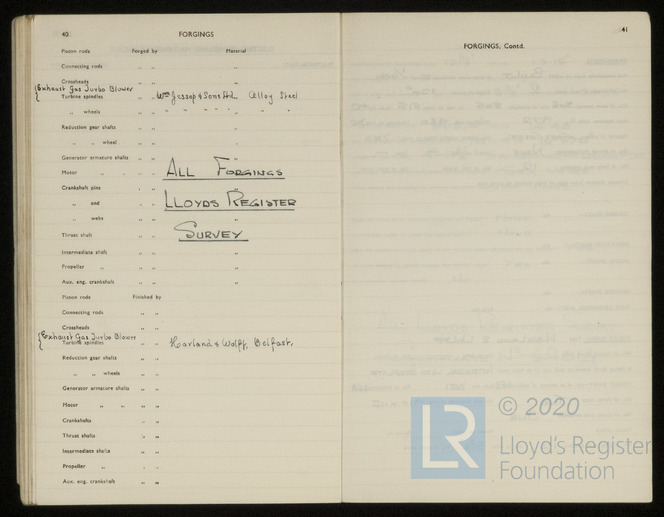 40
FORGINGS
Piston rods Forged by Material
Connecting rods " " "
Crossheads " " "
{Exhaust Gas Turbo Blower
Turbine spindles " " Wm Jessop & Sons Ltd. Alloy Steel
" wheels " " " " " " " "
Reduction gear shafts " " "
" " wheel " " "
Generator armature shafts " " "
Motor " " " "
ALL FORGINGS
Crankshaft pins " " "
" end " "
LLOYDS REGISTER
" webs " " "
Thrust shaft " "
SURVEY
Intermediate shaft " " "
Propeller " " " "
Aux. eng. crankshaft " " "
Piston rods Finished by
Connecting rods " "
Crossheads " "
{Exhaust Gas Turbo Blower
Turbine spindles " " Harland & Wolff, Belfast.
Reduction gear shafts " "
" " wheels " "
Generator armature shafts " "
Motor " " " "
Crankshafts " "
Thrust shafts " "
Intermediate shafts " "
Propeller " " "
Aux. eng. crankshaft " "
41
FORGINGS, Contd.
© 2020
LR
Lloyd's Register
Foundation